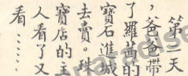 第　天
，爸爸帶
了羅前的
寶石進城
去賣。珠
寶店的主
人看了又
看……